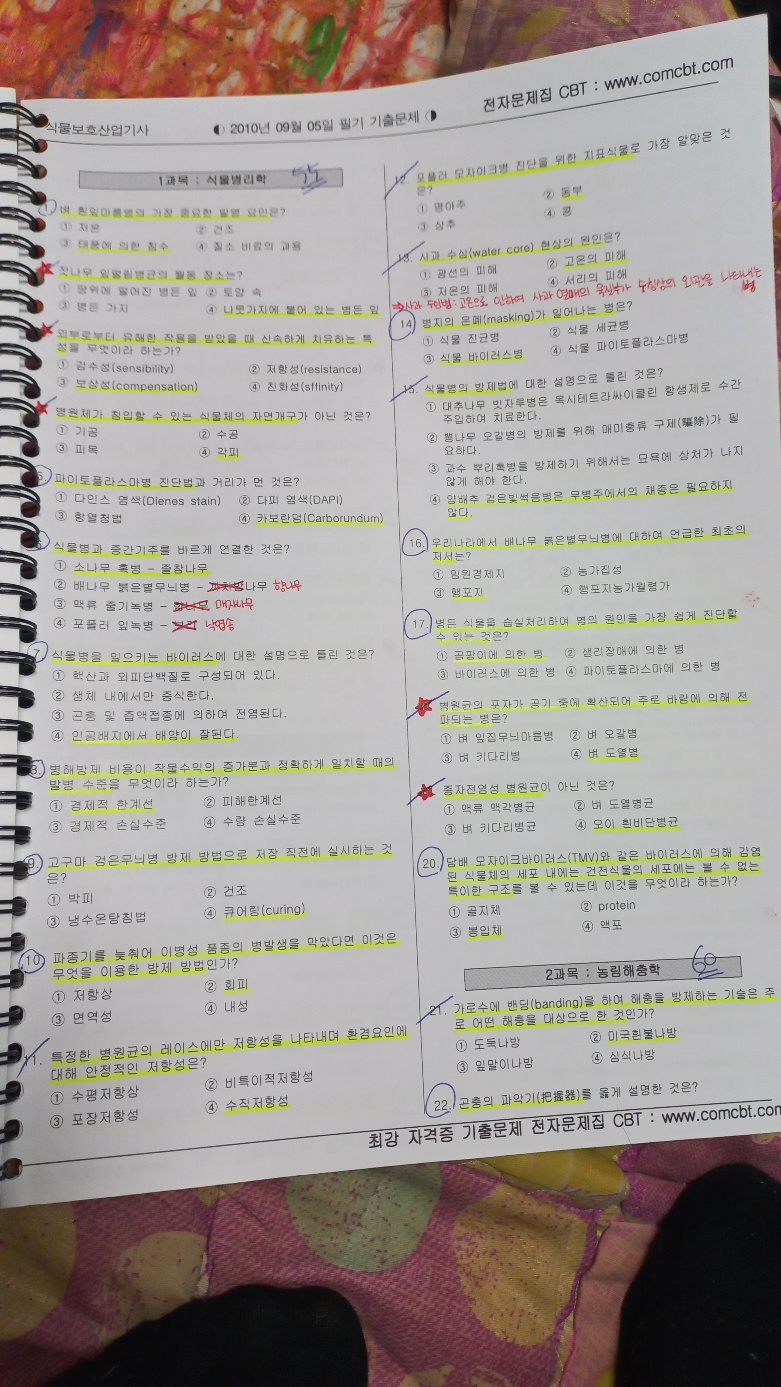 식물보호산업기사
◐ 2010년 09월 05일 필기 기출문제 ◑
전자문제집 CBT : www.comcbt.com
1과목 : 식물병리학
1. 벼 흰잎마름병의 가장 중요한 발병 요인은?
① 저온 ② 건조
③ 태풍에 의한 침수 ④ 질소 비료의 과용
잣나무 잎떨림병균의 월동 장소는?
① 땅위에 떨어진 병든 잎 ② 토양 속
③ 병든 가지 ④ 나뭇가지에 붙어 있는 병든 잎
외부로부터 유해한 작용을 받았을 때 신속하게 치유하는 특
성을 무엇이라 하는가?
① 감수성(sensibility) ② 저항성(resistance)
③ 보상성(compensation) ④ 친화성(sffinity)
병원체가 침입할 수 있는 식물체의 자연개구가 아닌 것은?
① 기공 ② 수공
③ 피목 ④ 각피
5. 파이토플라스마병 진단법과 거리가 먼 것은?
① 다인스 염색(Dienes stain) ② 다피 염색(DAPI)
③ 항혈청법 ④ 카보란덤(Carborundum)
6. 식물병과 중간기주를 바르게 연결한 것은?
① 소나무 혹병 - 졸참나무
② 배나무 붉은별무늬병 - 까치밥나무 향나무
③ 맥류 줄기녹병 - 향나무 매자나무
④ 포플러 잎녹병 - 낙엽송
7. 식물병을 일으키는 바이러스에 대한 설명으로 틀린 것은?
① 핵산과 외피단백질로 구성되어 있다.
② 생체 내에서만 증식한다.
③ 곤충 및 즙액접종에 의하여 전염된다.
④ 인공배지에서 배양이 잘된다.
8. 병해방제 비용이 작물수익의 증가분과 정확하게 일치할 때의
발병 수준을 무엇이라 하는가?
① 경제적 한계선 ② 피해한계선
③ 경제적 손실수준 ④ 수량 손실수준
9. 고구마 검은무늬병 방제 방법으로 저장 직전에 실시하는 것
은?
① 박피 ② 건조
③ 냉수온탕침법 ④ 큐어링(curing)
10. 파종기를 늦춰어 이병성 품종의 병발생을 막았다면 이것은
무엇을 이용한 방제 방법인가?
① 저항상 ② 회피
③ 면역성 ④ 내성
11. 특정한 병원균의 레이스에만 저항성을 나타내며 환경요인에
대해 안정적인 저항성은?
① 수평저항상 ② 비특이적저항성
③ 포장저항성 ④ 수직저항성
12. 포플러 모자이크병 진단을 위한 지표식물로 가장 알맞은 것
은?
① 명아주 ② 동부
③ 상추 ④ 콩
13. 사과 수심(water core) 현상의 원인은?
① 광선의 피해 ② 고온의 피해
③ 저온의 피해 ④ 서리의 피해
⇒사과 수심병: 고온으로 인하여 사과 열매의 육질부가 수침상의 외관을 나타내는
병
14. 병징의 은폐(masking)가 일어나는 병은?
① 식물 진균병 ② 식물 세균병
③ 식물 바이러스병 ④ 식물 파이토플라스마병
15. 식물병의 방제법에 대한 설명으로 틀린 것은?
① 대추나무 빗자루병은 옥시테트라싸이클린 항생제로 수간
주입하여 치료한다.
② 뽕나무 오갈병의 방제를 위해 매미충류 구제(驅除)가 필
요하다.
③ 과수 뿌리혹병을 방제하기 위해서는 묘목에 상처가 나지
않게 해야 한다.
④ 양배추 검은빛썩음병은 무병주에서의 채종은 필요하지
않다.
16. 우리나라에서 배나무 붉은별무늬병에 대하여 언급한 최초의
저서는?
① 임원경제지 ② 농가집성
③ 행포지 ④ 행포지농가월령가
17. 병든 식물을 습실처리하여 병의 원인을 가장 쉽게 진단할
수 있는 것은?
① 곰팡이에 의한 병 ② 생리장애에 의한 병
③ 바이러스에 의한 병 ④ 파이토플라스마에 의한 병
병원균의 포자가 공기 중에 확산되어 주로 바람에 의해 전
파되는 병은?
① 벼 잎집무늬마름병 ② 벼 오갈병
③ 벼 키다리병 ④ 벼 도열병
종자전염성 병원균이 아닌 것은?
① 맥류 맥각병균 ② 벼 도열병균
③ 벼 키다리병균 ④ 오이 흰비단병균
20. 담배 모자이크바이러스(TMV)와 같은 바이러스에 의해 감염
된 식물체의 세포 내에는 건전식물의 세포에는 볼 수 없는
특이한 구조를 볼 수 있는데 이것을 무엇이라 하는가?
① 골지체 ② protein
③ 봉입체 ④ 액포
2과목 : 농림해충학 60
21. 가로수에 밴딩(banding)을 하여 해충을 방제하는 기술은 주
로 어떤 해충을 대상으로 한 것인가?
① 도둑나방 ② 미국흰불나방
③ 잎말이나방 ④ 심식나방
22. 곤충의 파악기(把握器)를 옳게 설명한 것은?
최강 자격증 기출문제 전자문제집 CBT : www.comcbt.com